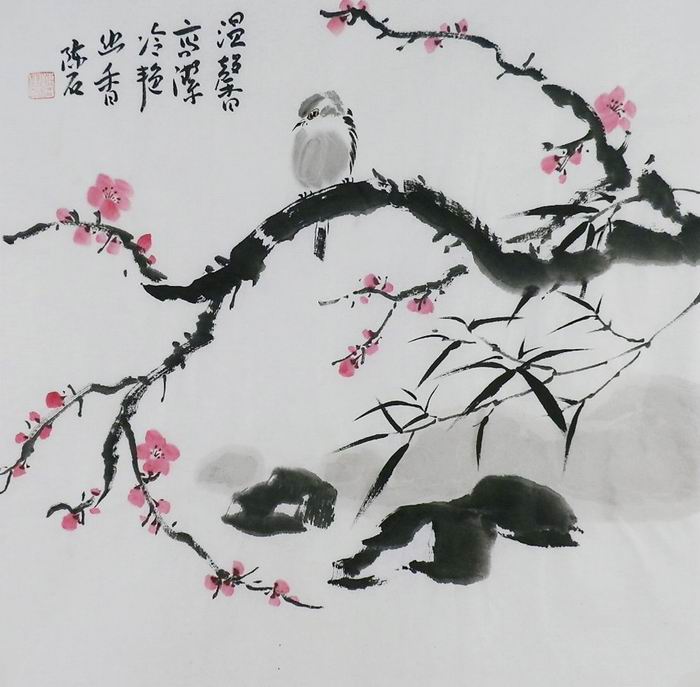 温馨
高潔
冷艳
幽香
陈石